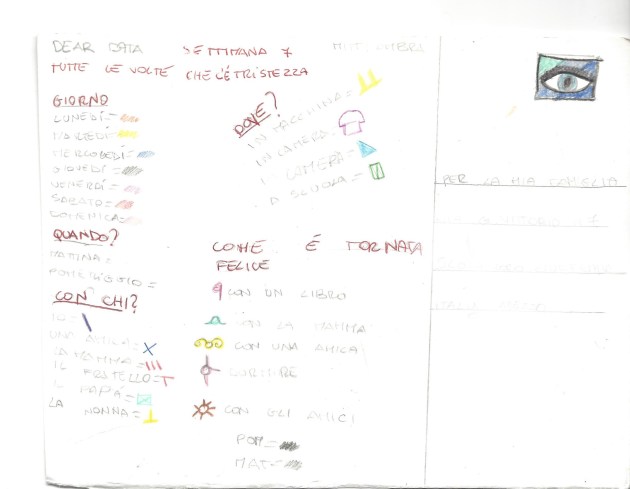 DEAR DATA SETTIMANA 7
TUTTE LE VOLTE CHE C'È TRISTEZZA
GIORNO
LUNEDÌ=
MARTEDÌ=
MERCOLEDÌ=
GIOVEDÌ=
VENERDÌ=
SABATO=
DOMENICA=
QUANDO?
MATTINA=
POMERIGGIO=
CON CHI?
IO=
UNA AMICA=
LA MAMMA=
IL FRATELLO=
IL PAPÀ=
LA NONNA=
DOVE?
IN MACCHINA=
IN CAMERA=
CAMERA=
A SCUOLA=
COME È TORNATA
FELICE
CON UN LIBRO
CON LA MAMMA
CON UNA AMICA
DORMIRE
CON GLI AMICI
POM=
MAT=
PER LA MIA FAMIGLIA